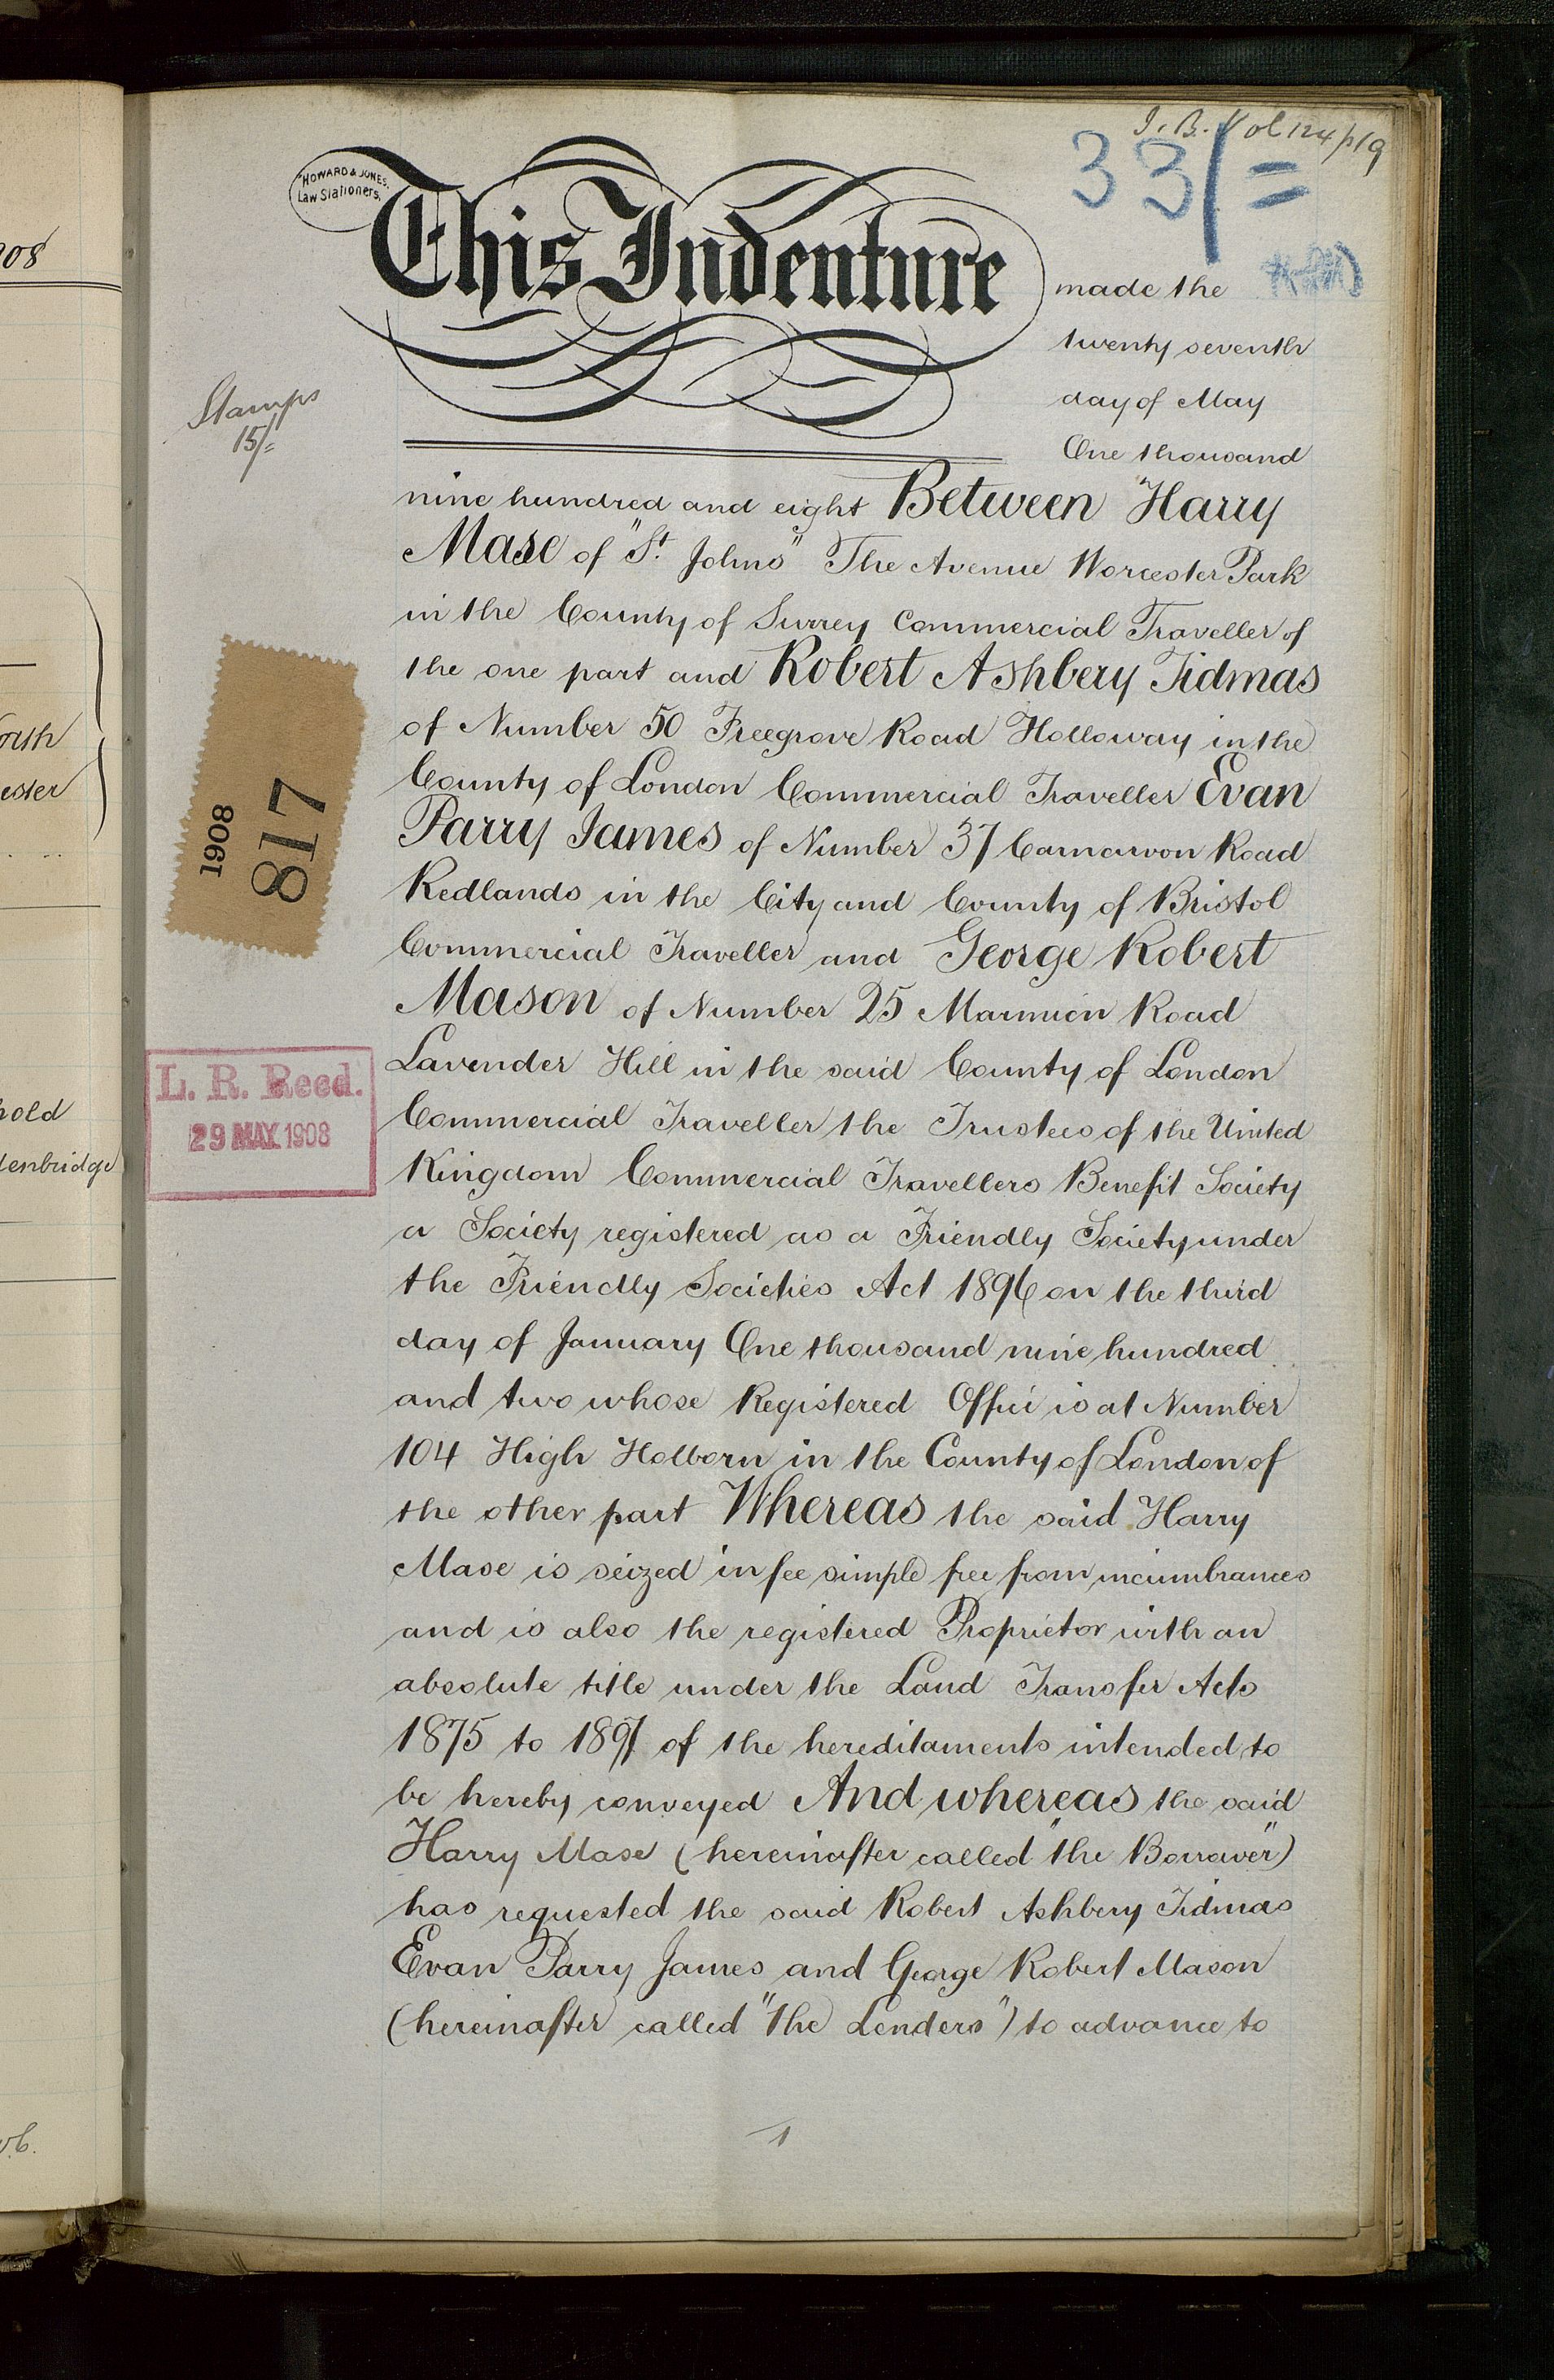 908
orth
ester
hold
denbridge
I. B. Vol 124 p19
33/=
HOWARD & JONES,
Law Stationers,
This Indenture
made the
twenty seventh
day of May
One thousand
Stamps
15/=
nine hundred and eight Between Harry
Mase of "St. Johns" The Avenue Worcester Park
in the County of Surrey Commercial Traveller of
the one part and Robert Ashbery Tidmas
of Number 50 Freegrove Road Holloway in the
County of London Commercial Traveller Evan
Parry James of Number 37 Carnarvon Road
Redlands in the City and County of Bristol
Commercial Traveller and George Robert
Mason of Number 25 Marmion Road
Lavender Hill in the said County of London
Commercial Traveller the Trustees of the United
Kingdom Commercial Travellers Benefit Society
a Society registered as a Friendly Society under
the Friendly Societies Act 1896 on the third
day of January One thousand nine hundred
and two whose Registered Office is at Number
104 High Holborn in the County of London of
the other part Whereas the said Harry
Mase is seized in fee simple free from incumbrances
and is also the registered Proprietor with an
absolute title under the Land Transfer Acts
1875 to 1897 of the hereditaments intended to
be hereby conveyed And whereas the said
Harry Mase (hereinafter called "the Borrower")
has requested the said Robert Ashbery Tidmas
Evan Parry James and George Robert Mason
(hereinafter called "the Lenders") to advance to
1908
817
L. R. Reed.
29 MAY. 1908
1